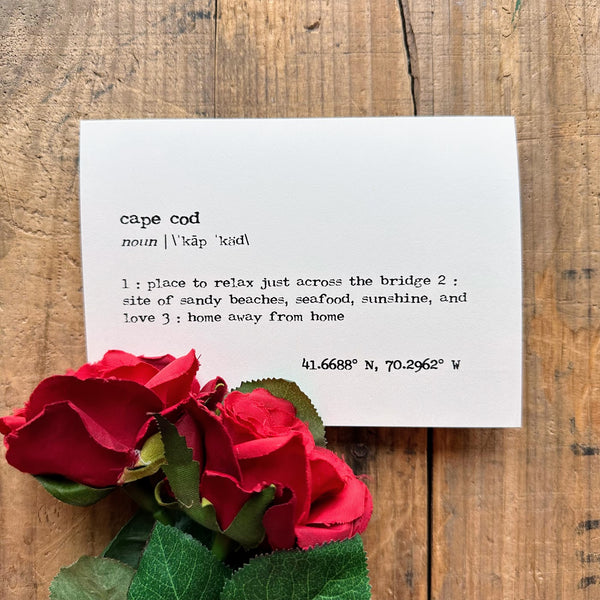 cape cod
noun | \ˈkāp ˈkäd\
1 : place to relax just across the bridge 2 :
site of sandy beaches, seafood, sunshine, and
love 3 : home away from home
41.6688° N, 70.2962° W